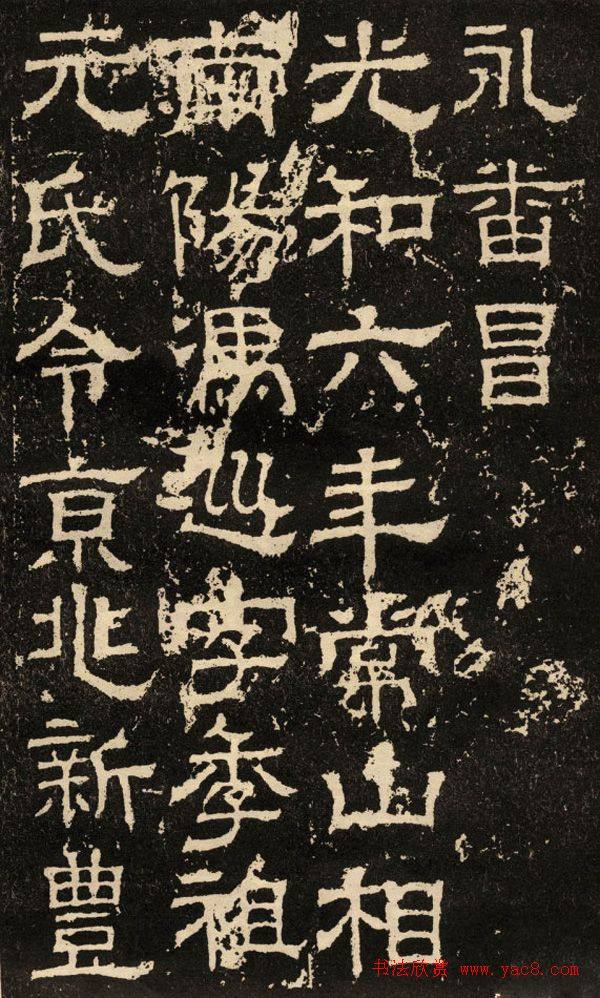 永番昌
光和六年常山相
南陽馮巡字季祖
元氏令京兆新豊
书法欣赏 www.yac8.com